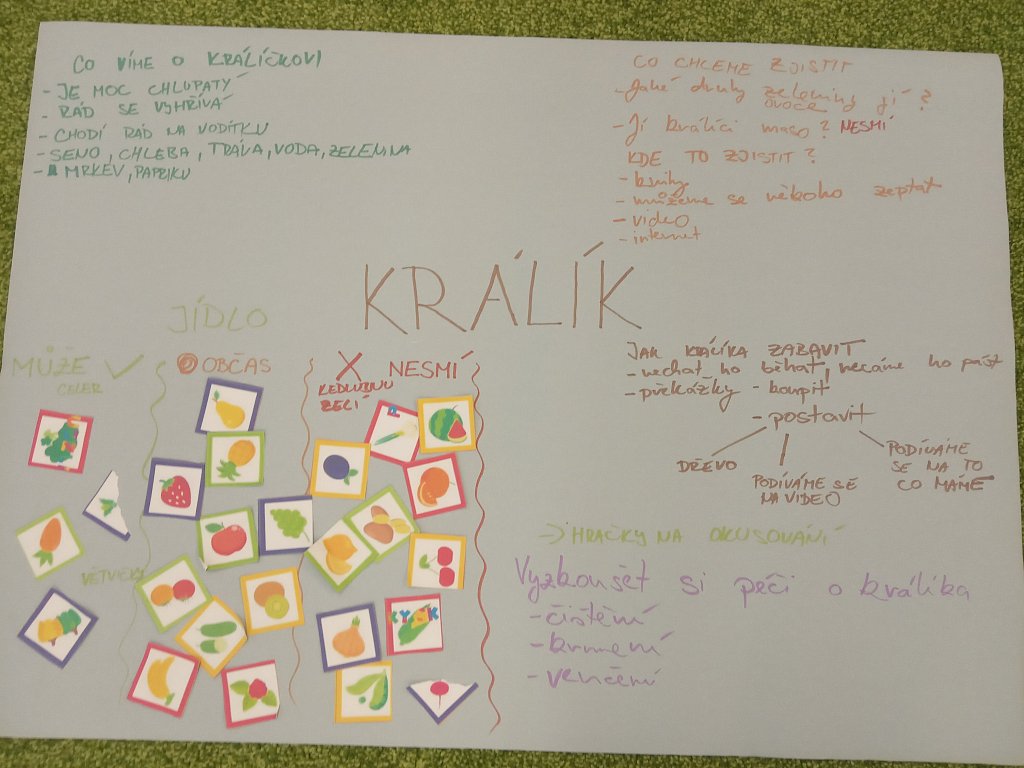 CO VÍME O KRÁLÍČKOVI
- JE MOC CHLUPATÝ
- RÁD SE VYHŘÍVÁ
- CHODÍ RÁD NA VODÍTKU
- SENO, CHLEBA, TRÁVA, VODA, ZELENINA
- MRKEV, PAPRIKU
CO CHCEME ZJISTIT
- Jaké druhy zeleniny jí?
ovoce
- Jí králíci maso? NESMÍ
KDE TO ZJISTIT?
- knihy
- můžeme se někoho zeptat
- video
- internet
KRÁLÍK
JÍDLO
MŮŽE ✓
CELER
VĚTVIČKY
OBČAS
X NESMÍ
KEDLUBNU
ZELÍ
JAK KRÁLÍKA ZABAVIT
- nechat ho běhat, necáme ho pást
- překážky - koupit
- postavit
DŘEVO
PODÍVÁME SE
NA VIDEO
PODÍVÁME
SE NA TO
CO MÁME
-> HRAČKY NA OKUSOVÁNÍ
Vyzkoušet si péči o králíka
- čištění
- krmení
- venčení